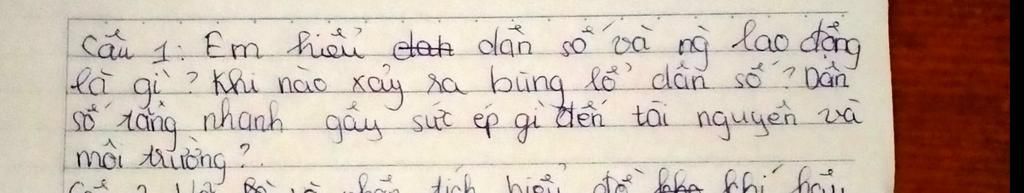 Câu 1: Em hiểu dân số và ng̀ lao động
là gì? Khi nào xảy ra bùng lổ dân số? Dân
số tăng nhanh gây sức ép gì đến tài nguyên và
môi trường?